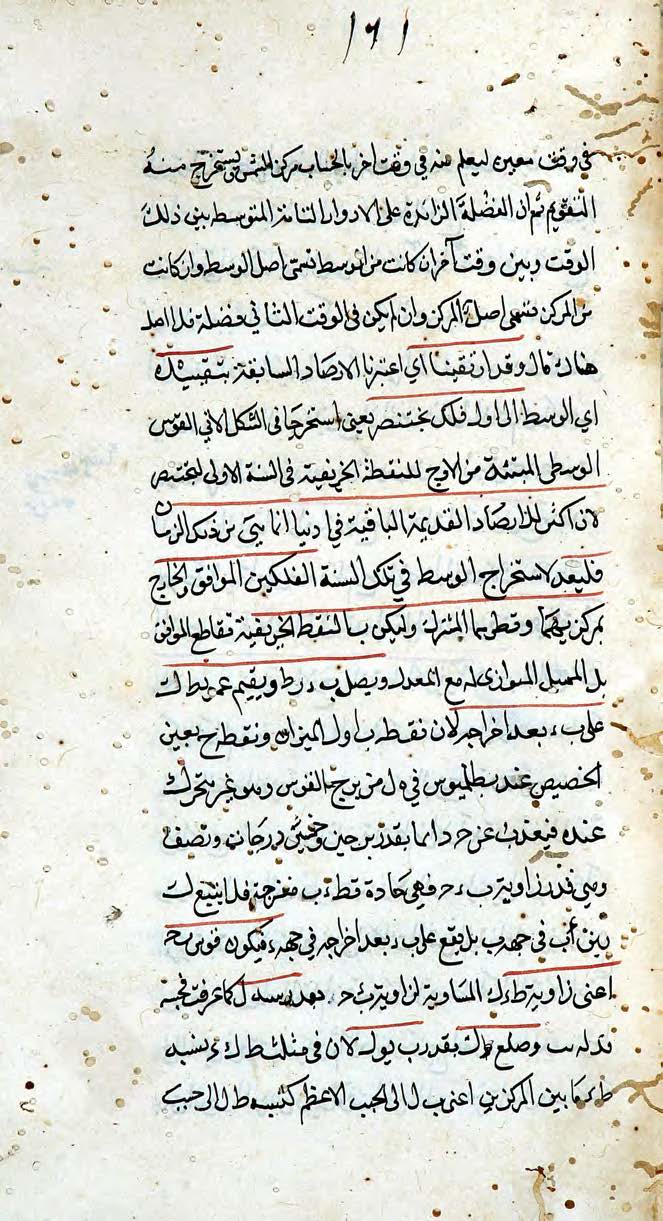 ١٦١
في وقت معين ليعلم منه في وقت آخر بالحساب مركز الشمس يستخرج منه
التقويم ثم ان الفضلة الزائدة على الادوار التامة المتوسط بين ذلك
الوقت وبين وقت آخر ان كانت من الوسط تسمى اصل الوسط وان كانت
من المركز فتسمى اصل المركز وان لم يكن في الوقت الثاني فضلة فلا اصل
هناك قال وقد ارتقينا اي اعتبرنا الارصاد السابقة بتقييده
اي الوسط الى اول ملك بختنصر يعني استخرجنا في الشكل الآتي القوس
الوسطى المبتدئة من الاوج للنقطة الخريفية في السنة الاولى لبختنصر
لان اكثر الارصاد القديمة الباقية في دنيا انما هي من ذلك الزمان
فليعد لاستخراج الوسط في تلك السنة الفلكين الموافق والخارج
بمركزيهما وقطرهما المشترك وليكن ب النقطة الخريفية تقاطع الموافق
بل الممثل الموازي له مع المعدل ويصل ب ء ر ط ويقيم عمود ط ك
على ب ء بعد اخراجه لان نقطة ب اول الميزان ونقطة ح بعين
الحضيض عند بطلميوس في ه ل من برج القوس وهو غير متحرك
عنده فبعد ب عن ح دائما بقدر برجين وخمس درجات ونصف
وهي قدر زاوية ب ء ح فهي حادة فط ء ب منفرجة فلا يقع ط ك
بين أب في جهة ب بل يقع على ب ء بعد اخراجه في جهة ء فيكون قوس ب ح
اعني زاوية ط ء ك المساوية لزاوية ب ء ح بقدر سه ل كما عرفت فجيبه
وضلع ط ك بقدر لان في مثلث ط ك ء نسبة
ط ء ما بين المركزين اعني ب ل الى الجيب الاعظم كنسبة ط ك الى جيب